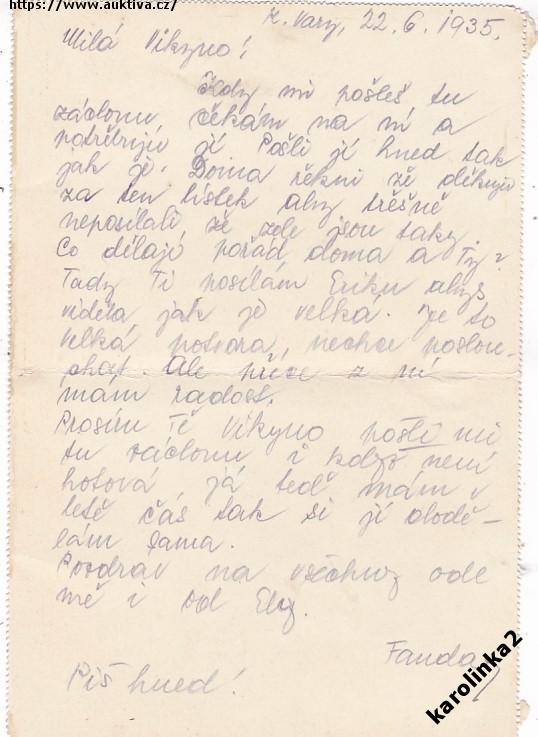 https://www.auktiva.cz/
K. Vary, 22. 6. 1935.
Milá Vikyno!
Kdy mi pošleš tu
záclonu, čekám na ní a
potřebuji jí Pošli jí hned tak
jak je. Doma řekni že děkuji
za ten lístek aby třešně
neposílali, že zde jsou taky.
Co dělají pořád doma a Ty?
Tady Ti posílám Eriku abys
viděla jak je velká. Je to
velká potvora, nechce poslou-
chat. Ale přece z ní
mám radost.
Prosím Tě Vikyno pošli mi
tu záclonu i když není
hotová já teď mám v
letě čas tak si jí dodě-
lám sama.
Pozdrav na všechny ode
mě i od Ely.
Fanda
Piš hned!
karolinka2